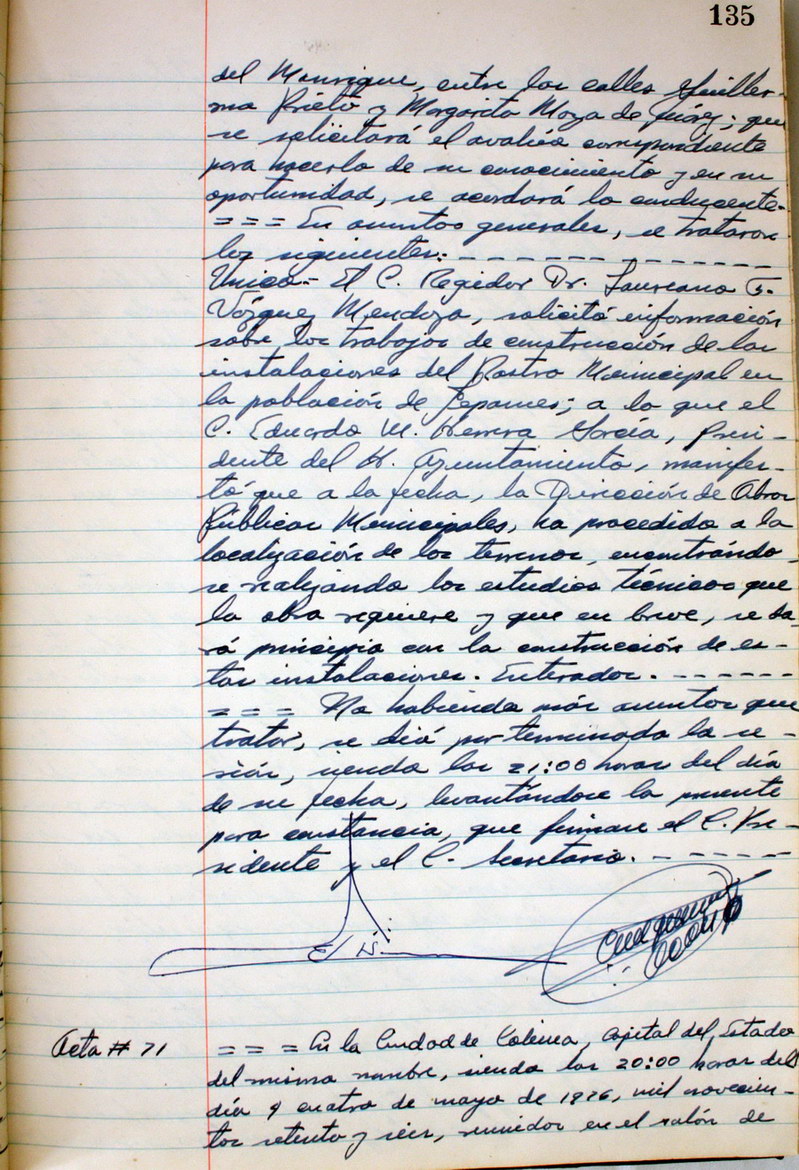 135
del Manrique, entre las calles Guiller-
mo Prieto y Margarita Maza de Juárez; que
se solicitará el avalúo correspondiente
para hacerlo de su conocimiento y en su
oportunidad, se acordará lo conducente.-
= = = En asuntos generales, se trataron
los siguientes:- - - - - - - - - - - - -
Unico.- El C. Regidor Dr. Laureano G.
Vázquez Mendoza, solicitó información
sobre los trabajos de construcción de las
instalaciones del Rastro Municipal en
la población de Tepames; a lo que el
C. Eduardo M. Herrera García, Presi-
dente del H. Ayuntamiento, manifes-
tó que a la fecha, la Dirección de Obras
Públicas Municipales, ha procedido a la
localización de los terrenos, encontrándo-
se realizando los estudios técnicos que
la obra requiere y que en breve, se da-
rá principio con la construcción de es-
tas instalaciones. Enterados. - - - - - -
= = = No habiendo más asuntos que
tratar, se dió por terminada la se-
sión, siendo las 21:00 horas del día
de su fecha, levantándose la presente
para constancia, que firman el C. Pre-
sidente y el C. Secretario. - - - - - -
Acta # 71
= = = En la Ciudad de Colima, Capital del Estado
del mismo nombre, siendo las 20:00 horas del
día 4 cuatro de mayo de 1976, mil novecien-
tos setenta y seis, reunidos en el salón de